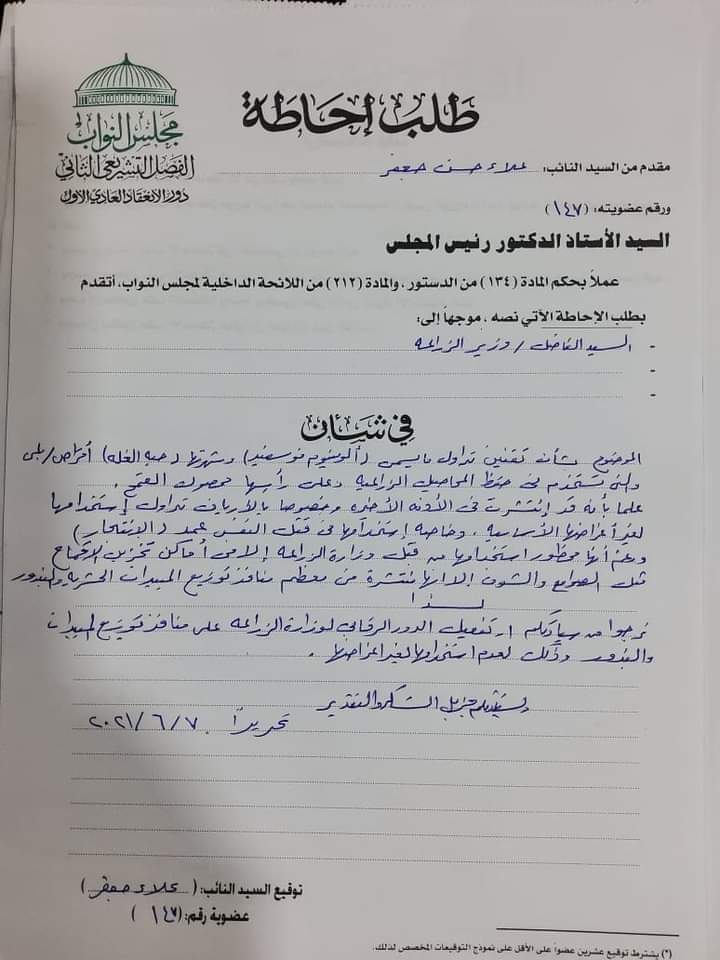 مجلس النواب
الفصل التشريعي الثاني
دور الانعقاد العادي الأول
طلب إحاطة
مقدم من السيد النائب: علاء حسن جعفر
ورقم عضويته: (١٤٧)
السيد الأستاذ الدكتور رئيس المجلس
عملاً بحكم المادة (١٣٤) من الدستور، والمادة (٢١٢) من اللائحة الداخلية لمجلس النواب، أتقدم
بطلب الإحاطة الآتي نصه، موجهاً إلى:
- السيد الفاضل / وزير الزراعه
-
-
في شأن
الموضوع بشأن تقنين تداول مايسمى (ألومنيوم فوسفيد) وشهرتها (حبه الغله) أقراص/بلى
والتى تستخدم فى حفظ المحاصيل الزراعية وعلى رأسها محصول القمح.
علما بأنه قد إنتشرت فى الآونه الأخيره وخصوصا بالأرياف تداول إستخدامها
لغير أغراضها الأساسيه. وخاصه إستخدامها فى قتل النفس عمد (الإنتحار)
ورغم أنها محظور استخدامها من قبل وزارة الزراعه إلا فى أماكن تخزين الأقماح
مثل الصوامع والشون إلا انها منتشرة من معظم منافذ توزيع المبيدات الحشريه والبذور
لذا
نرجوا من سيادتكم ان تفعيل الدور الرقابى لوزارة الزراعه على منافذ توزيع المبيدات
والبذور وذلك لعدم استخدامها لغير اغراضها.
ولسيادتكم جزيل الشكر والتقدير
تحريراً ٢٠٢١/٦/٧
توقيع السيد النائب: (علاء جعفر)
عضوية رقم: (١٤٧)
(*) يشترط توقيع عشرين عضواً على الأقل على نموذج التوقيعات المخصص لذلك.